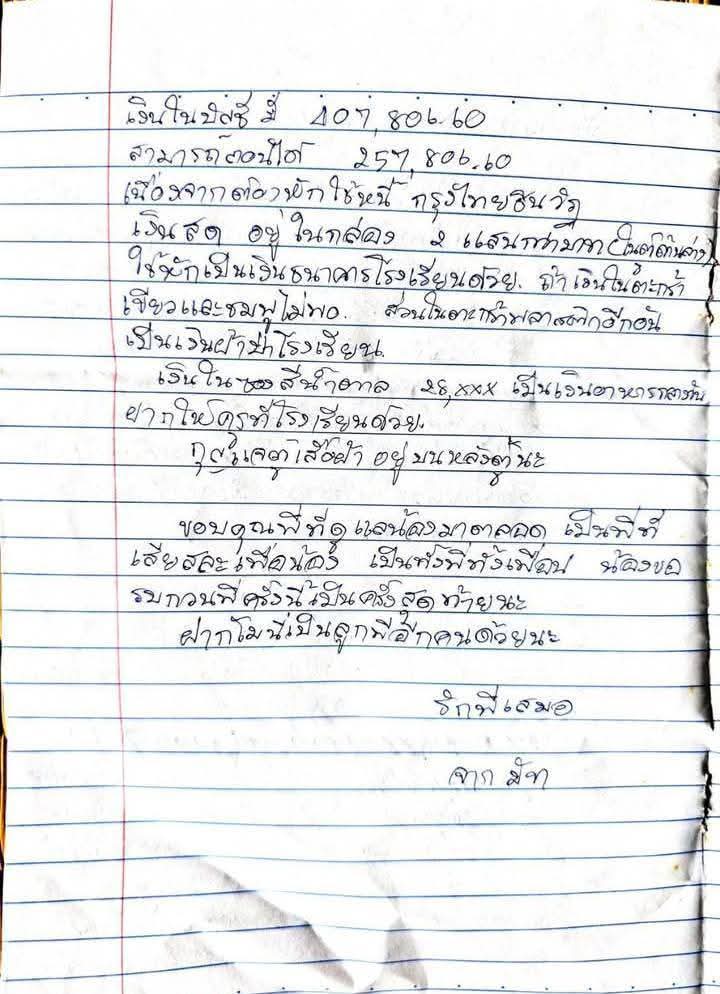 เงินในบัลชี มี 407,806.60
สามารถถอนได้ 257,806.60
เนื่องจากต้องหักใช้หนี้ กรุงไทยธนวัฏ
เงินสด อยู่ในกล่อง 2 แสนกว่าบาท (ในตู้ด้านล่าง)
ใช้หักเป็นเงินธนาคารโรงเรียนด้วย. ถ้าเงินในตะกร้า
เขียวและชมพูไม่พอ. ส่วนในตะกร้าพลาสติกอีกอัน
เป็นเงินผ้าป่าโรงเรียน.
เงินในซองสีน้ำตาล 28,xxx เป็นเงินอาหารกลางวัน
ฝากให้ครูที่โรงเรียนด้วย.
กุญแจตู้เสื้อผ้า อยู่บนหลังตู้นะ
ขอบคุณพี่ที่ดูแลน้องมาตลอด เป็นพี่ที่
เสียสละเพื่อน้อง เป็นทั้งพี่ทั้งเพื่อน น้องขอ
รบกวนพี่ครั้งนี้เป็นครั้งสุดท้ายนะ
ฝากโมนีเป็นลูกพี่อีกคนด้วยนะ
รักพี่เสมอ
จาก